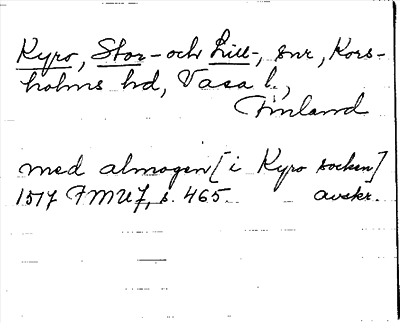 Kyro, Stor- och Lill-, snr, Kors-
holms hd, Vasa l.,
Finland
med almogen [i Kyro socken]
1517 FMU 7, s. 465. avskr.